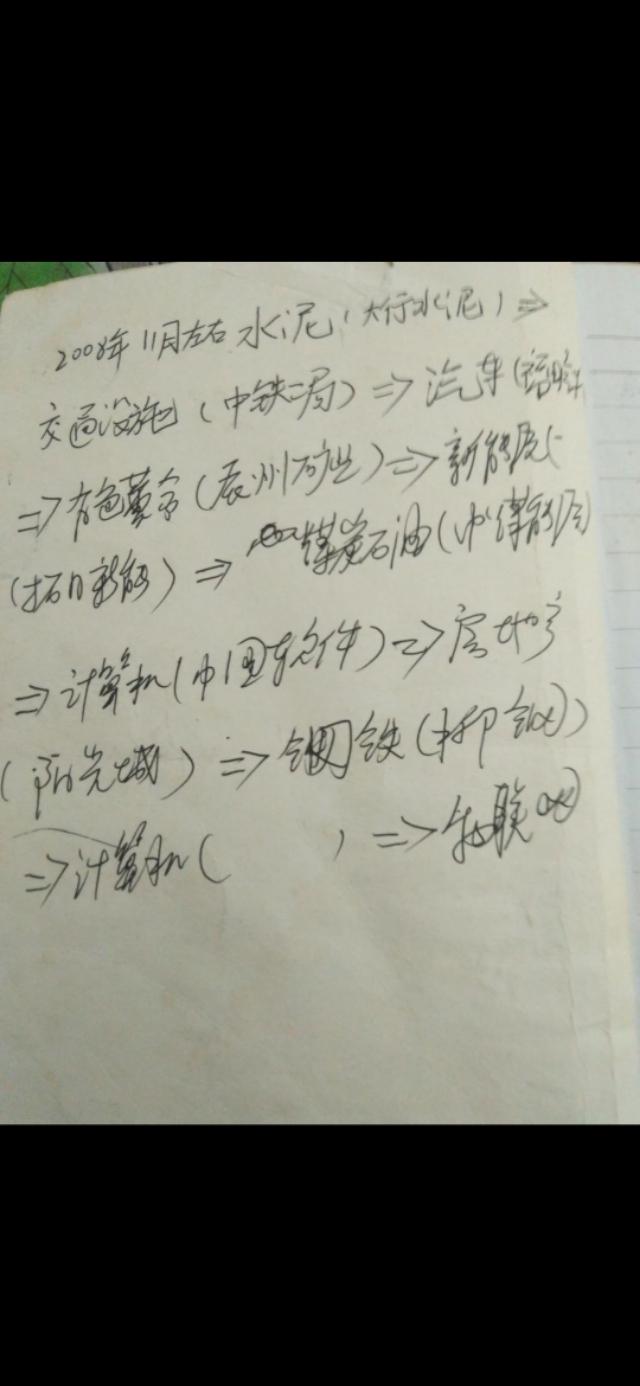 2008年11月左右 水泥(太行水泥)⇒
交通设施(中铁二局)⇒汽车(
⇒有色黄金(辰州矿业)⇒新能源
(拓日新能)⇒煤炭石油(中煤能源)
⇒计算机(中国软件)⇒房地产
(阳光城)⇒钢铁(柳钢)
⇒计算机( )⇒物联网